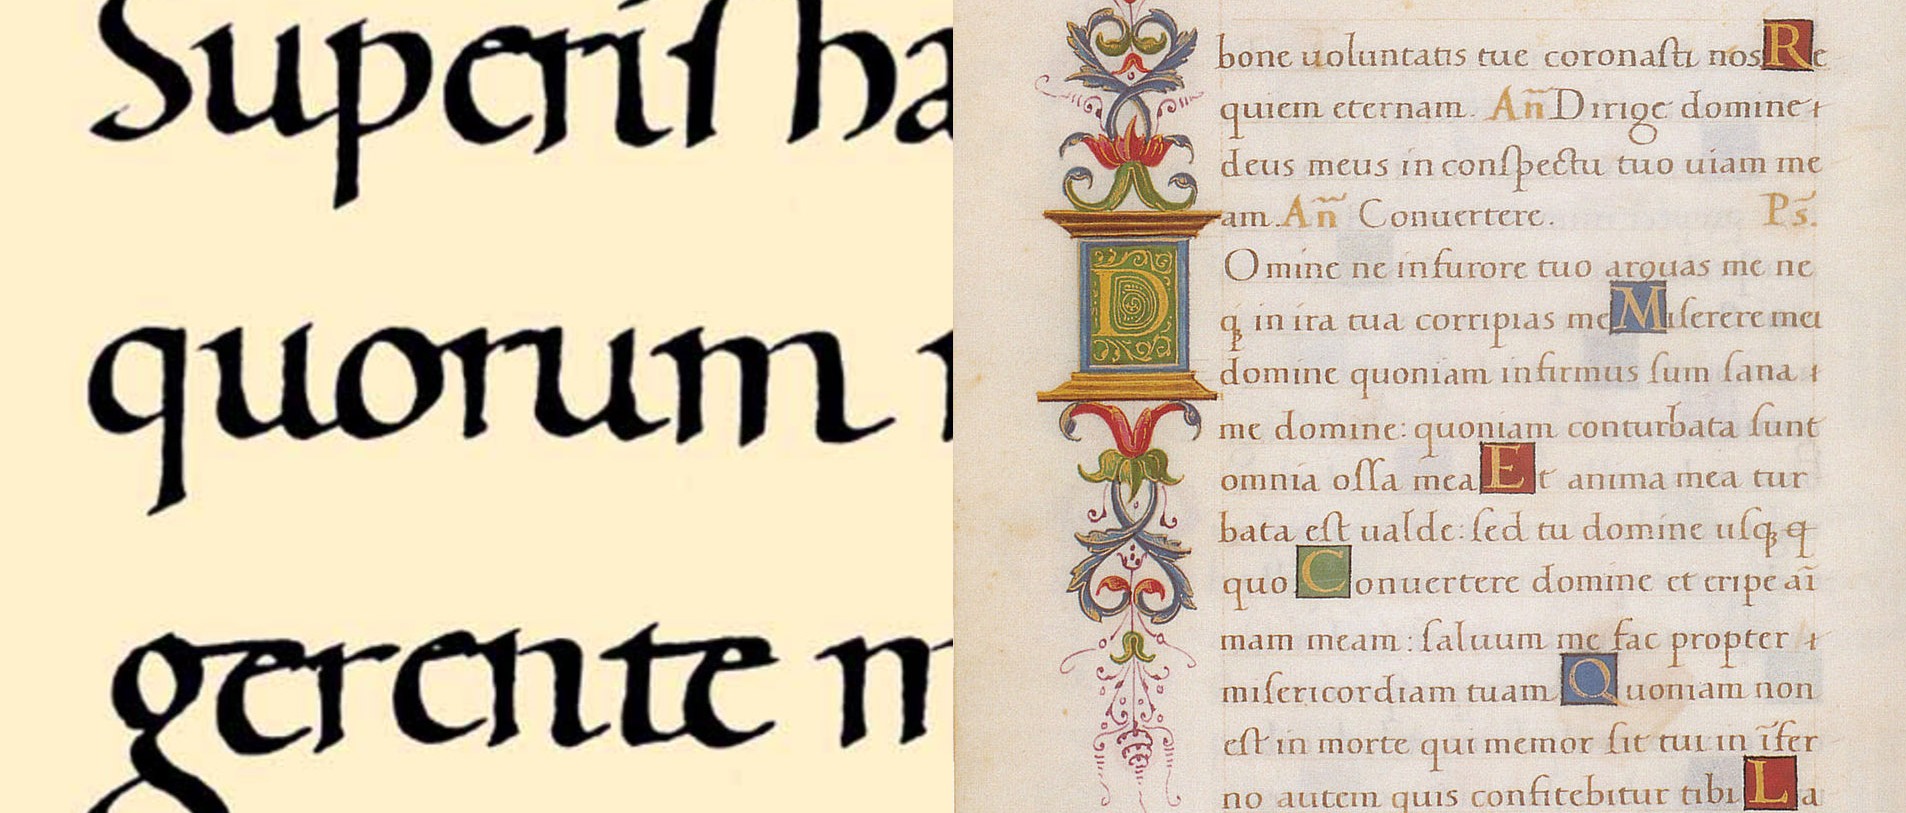 Superiſ ha
quorum
gerente m
bone uoluntatis tue coronaſti nos Re
quiem eternam. An̄ Dirige domine
deus meus in conſpectu tuo uiam me
am. An̄ Conuertere. Ps̄.
D Omine ne in furore tuo arguas me ne
q̨ in ira tua corripias me Miſerere mei
domine quoniam infirmus ſum ſana
me domine: quoniam conturbata ſunt
omnia oſſa mea Et anima mea tur
bata eſt ualde: ſed tu domine uſq̨
quo Conuertere domine et eripe aī
mam meam: ſaluum me fac propter
miſericordiam tuam Quoniam non
eſt in morte qui memor ſit tui in īfer
no autem quis confitebitur tibi La